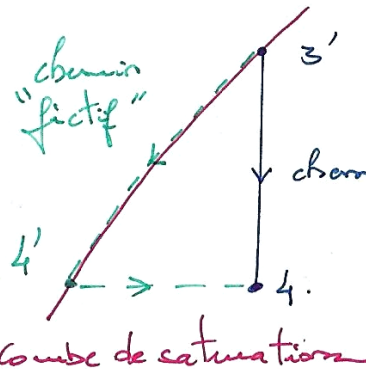 chemin
"fictif"
3'
chem
4'
4.
Courbe de saturation